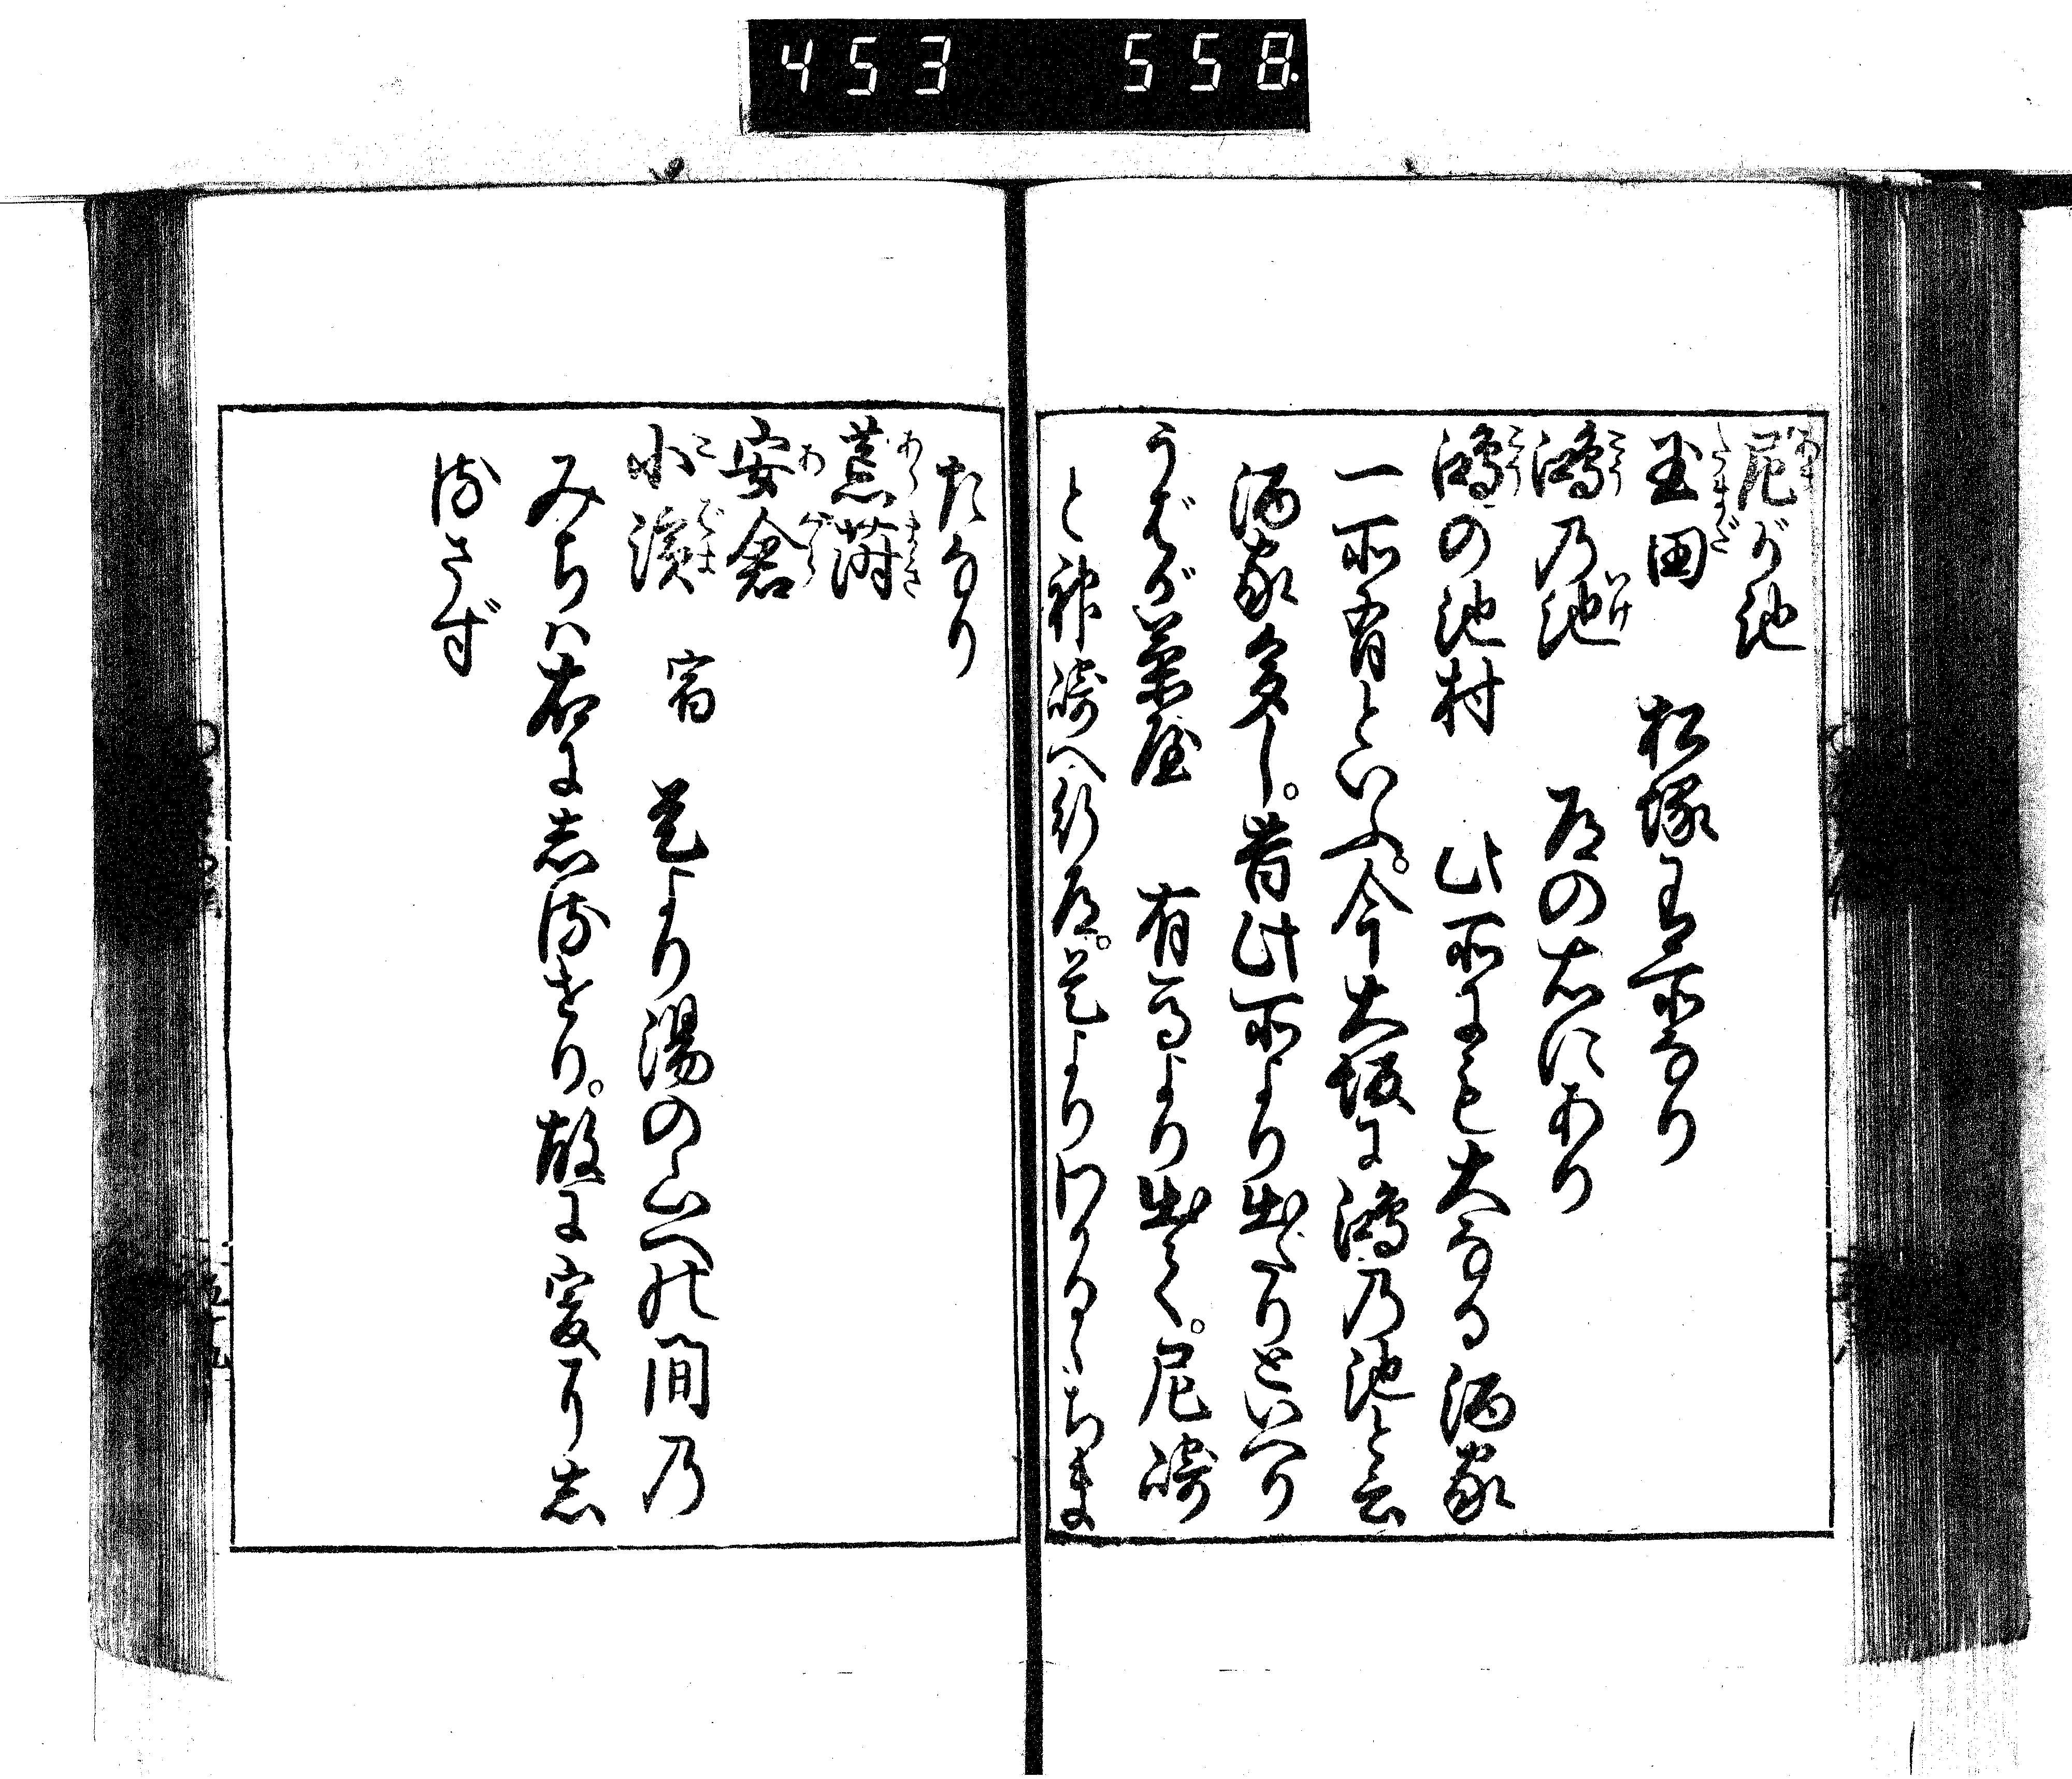 453 558
尼が池
玉田 松塚有所なり
鴻乃池 道の右にあり
鴻の池村 此所にも大なる酒家
一所有といふ。今大坂に鴻乃池と云
酒家多し。昔此所より出たりといへり
うばが茶屋 有馬より出て。尼崎
と神崎へ行道。是よりわかるゝちま
たなり
荒蒔
安倉
小濱 宿 是より湯の山への間乃
みちハ右に志るせり。故に爰に志
るさず